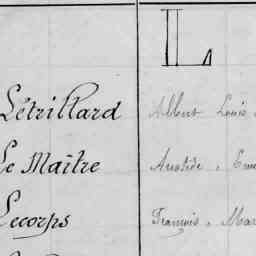 L
Létrillard Albert Louis
Le Maître Aristide, Em
Lecorps François, Mar